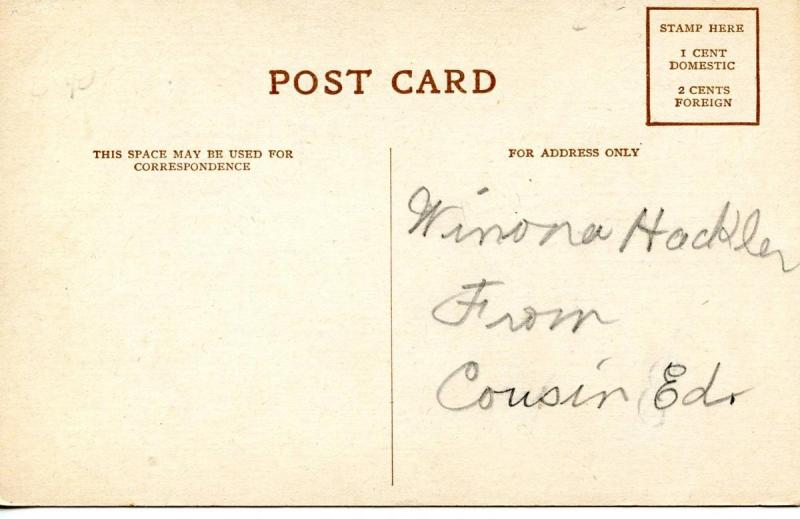 POST CARD
STAMP HERE
1 CENT
DOMESTIC
2 CENTS
FOREIGN
THIS SPACE MAY BE USED FOR
CORRESPONDENCE
FOR ADDRESS ONLY
Winona Hackler
From
Cousin Ed.